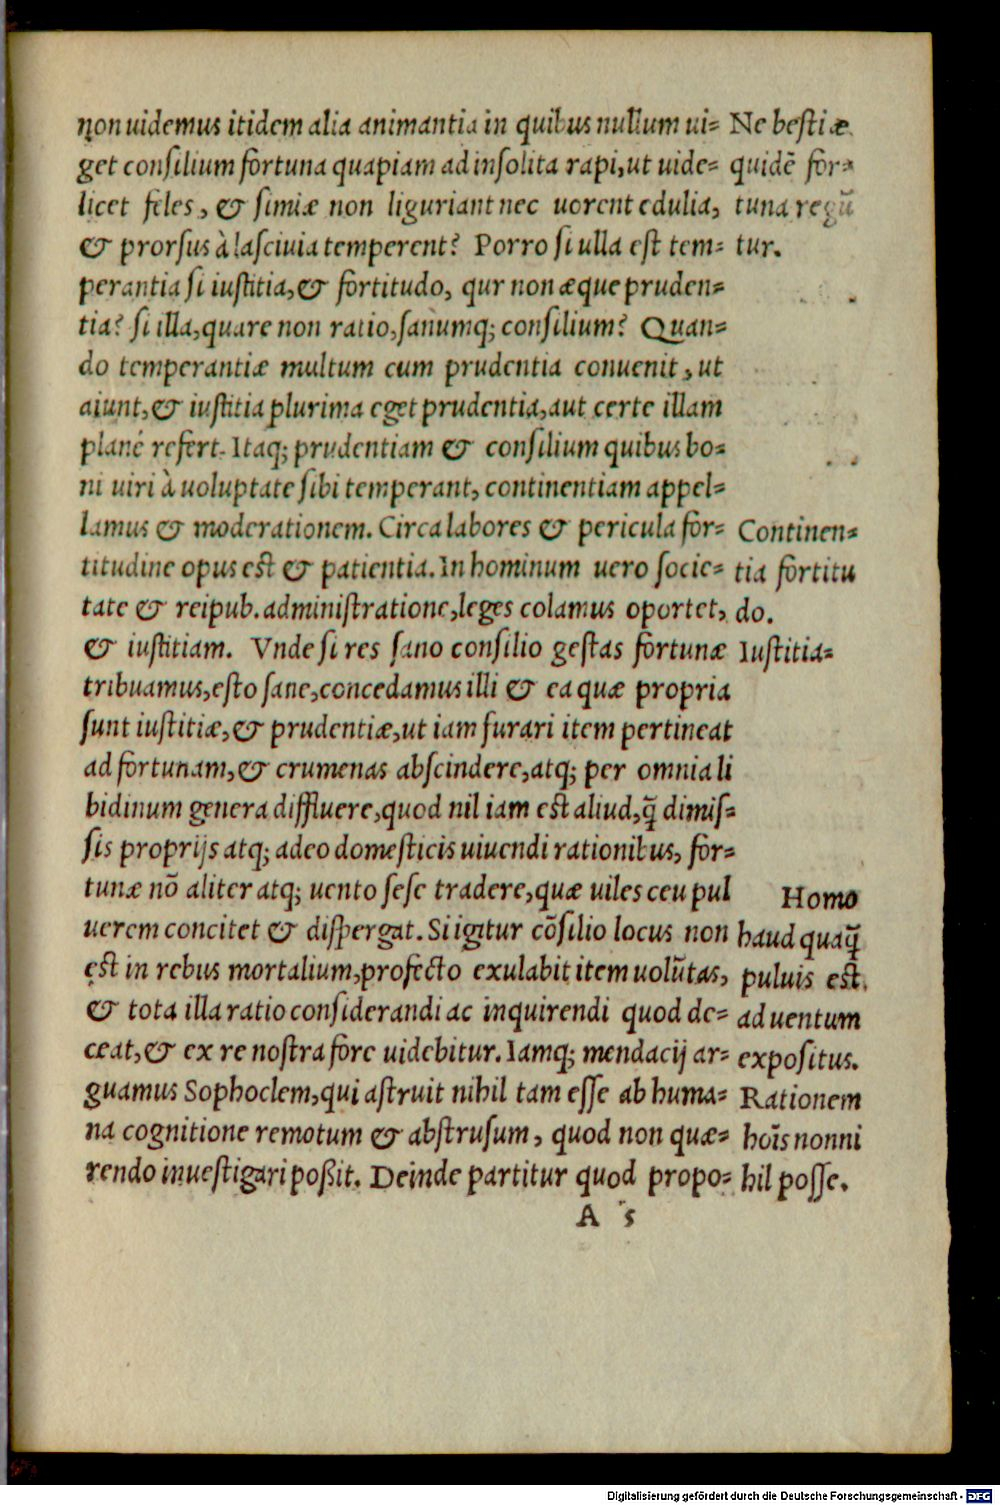 non uidemus itidem alia animantia in quibus nullum ui=
get consilium fortuna quapiam ad insolita rapi, ut uide=
licet feles, & simiæ non liguriant nec uorent edulia,
& prorsus à lasciuia temperent? Porro si ulla est tem=
perantia si iustitia, & fortitudo, qur non æque pruden=
tia? si illa, quare non ratio, sanumq; consilium? Quan=
do temperantiæ multum cum prudentia conuenit, ut
aiunt, & iustitia plurima eget prudentia, aut certe illam
planè refert. Itaq; prudentiam & consilium quibus bo=
ni uiri à uoluptate sibi temperant, continentiam appel=
lamus & moderationem. Circa labores & pericula for=
titudine opus est & patientia. In hominum uero socie=
tate & reipub. administratione, leges colamus oportet,
& iustitiam. Vnde si res sano consilio gestas fortunæ
tribuamus, esto sane, concedamus illi & ea quæ propria
sunt iustitiæ, & prudentiæ, ut iam furari item pertineat
ad fortunam, & crumenas abscindere, atq; per omnia li
bidinum genera diffluere, quod nil iam est aliud, q̃ dimis=
sis proprijs atq; adeo domesticis uiuendi rationibus, for=
tunæ nõ aliter atq; uento sese tradere, quæ uiles ceu pul
uerem concitet & dispergat. Si igitur cõsilio locus non
est in rebus mortalium, profecto exulabit item uolũtas,
& tota illa ratio considerandi ac inquirendi quod de=
ceat, & ex re nostra fore uidebitur. Iamq; mendacij ar=
guamus Sophoclem, qui astruit nihil tam esse ab huma=
na cognitione remotum & abstrusum, quod non quæ=
rendo inuestigari poßit. Deinde partitur quod propo=
A 5
Ne bestiæ
quidẽ for=
tuna regũ
tur.
Continen=
tia fortitu
do.
Iustitia=
Homo
haud quaq̃
puluis est
ad uentum
expositus.
Rationem
hoĩs non ni
hil posse.
Digitalisierung gefördert durch die Deutsche Forschungsgemeinschaft - DFG